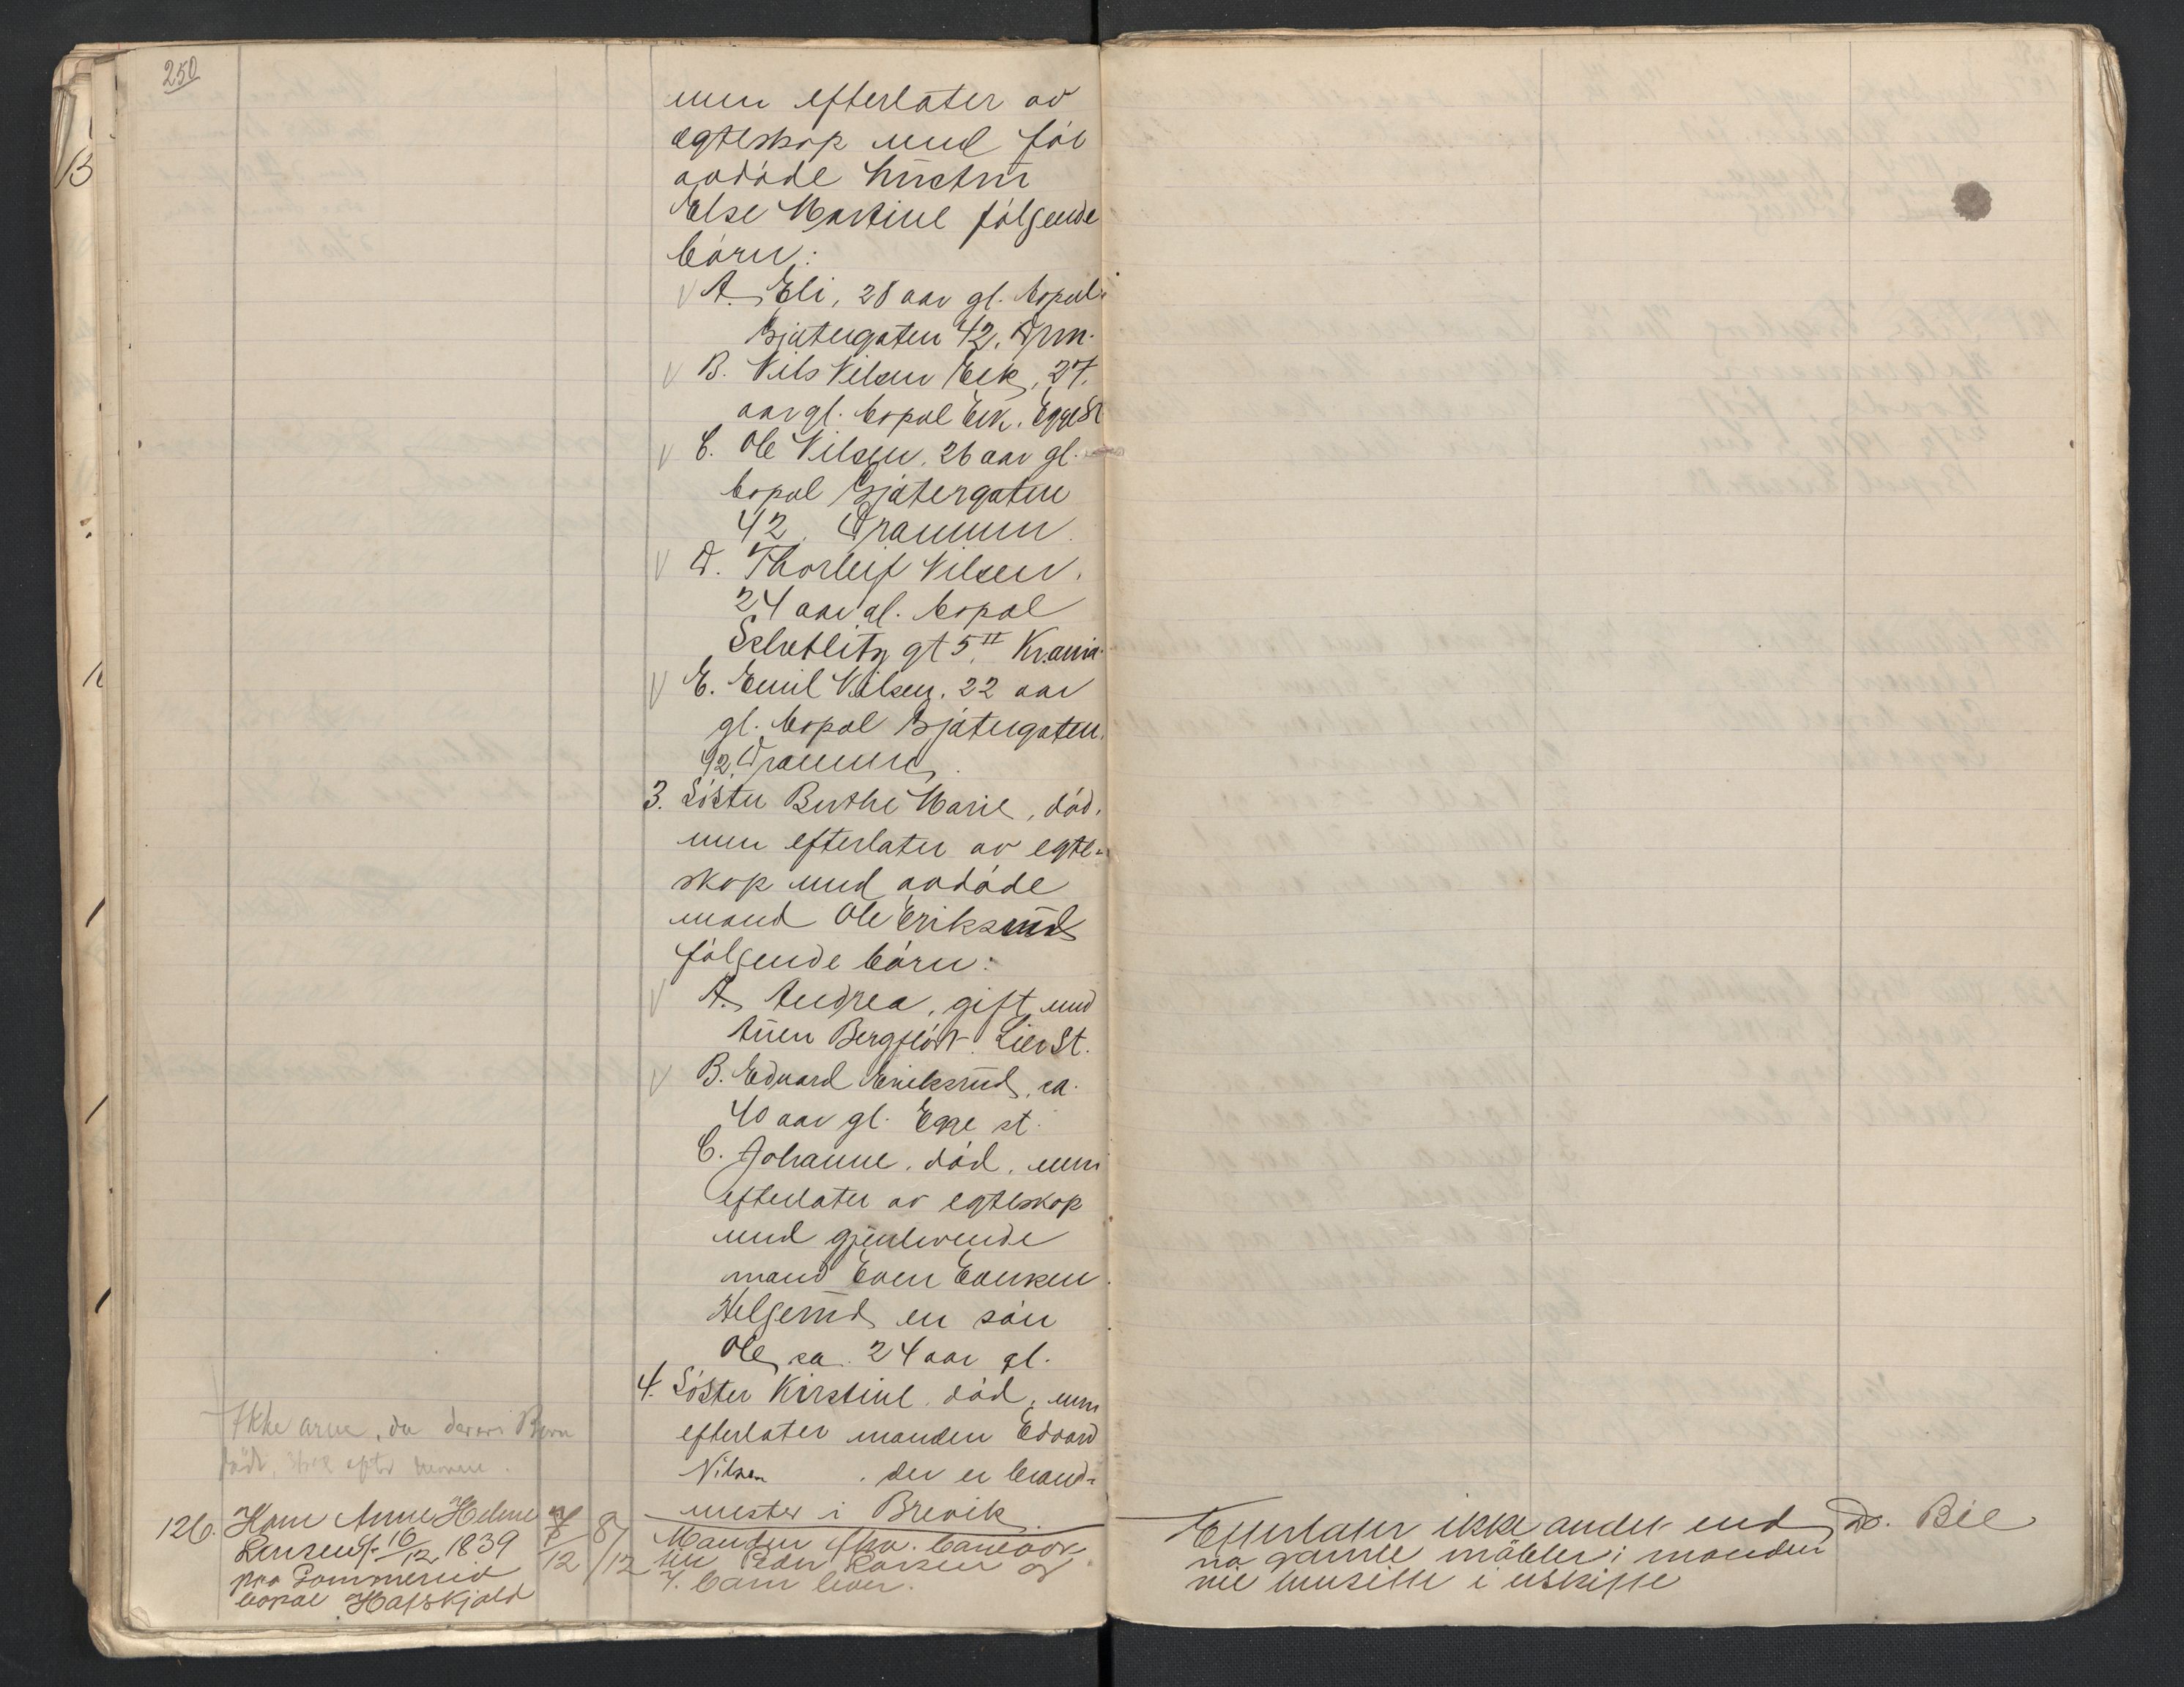 250
men efterlater av
egteskap med før
avdøde hustru
Else Martine følgende
børn:
A. Eli, 28 aar gl. bopæl:
Gjætergaten 42. Drm.
B. Nils Nilsen Eek, 27.
aar gl. bopæl Eek. Egge St
C. Ole Nilsen, 26 aar gl.
bopæl Gjætergaten
42, Drammen.
D. Thorleif Nilsen.
24 aar gl. bopæl
Schwetlitz gt 5 II Kr.ania
E. Emil Nilsen. 22 aar
gl. bopæl Gjætergaten.
42. Drammen.
3. Søster Berthe Marie, død,
men efterlater av egte-
skap med avdøde
mand Ole Eriksrud
følgende børn:
A. Andrea, gift med
Bergfløt. Lier St.
B. Edvard Eriksrud, ca.
40 aar gl. Egge st.
C. Johanne, død, men
efterlater av egteskap
med gjenlevende
mand Even Evensen
Helgerud en søn
Ole, ca. 24 aar gl.
4. Søster Kirstine, død, men
efterlater manden Edvard
Nilsen . der er brand-
mester i Brevik.
Ikke arve, da
126. Kone Anne Helene
Larsen f. 16/12 1839
paa Sommerud
bopæl Hafskjold
7/12
8/12
Manden fhv. banevok
ter Peder Larsen og
7. barn lever.
Efterlater ikke andet end
no gamle møbler; manden
vil hensitte i uskifte
Do. Bil